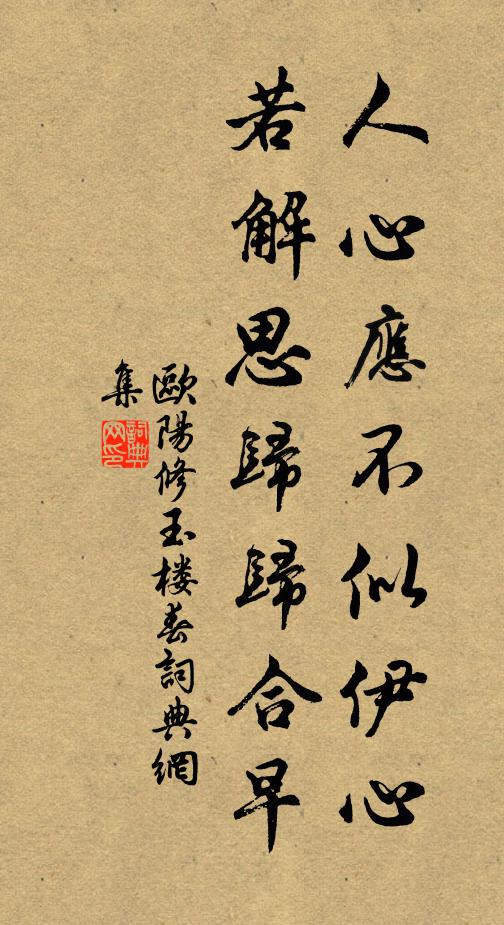 人心應不似伊心
若解思歸歸合早
歐陽修玉楼春詞典網
集
詞典
网印